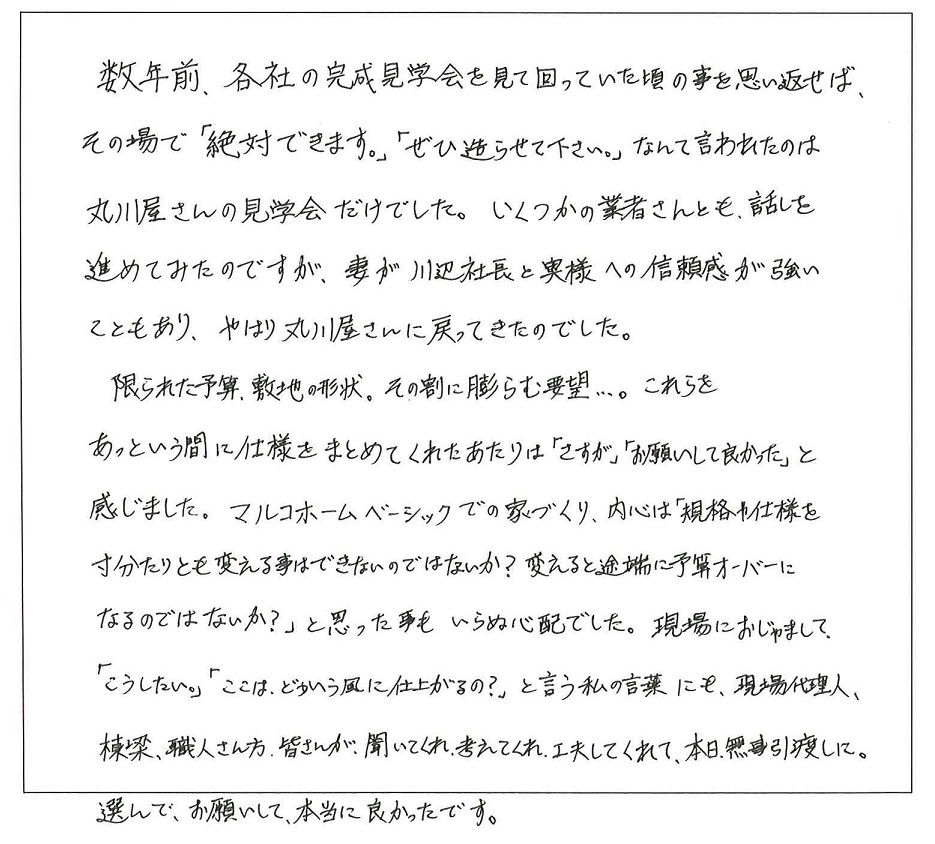 数年前、各社の完成見学会を見て回っていた頃の事を思い返せば、
その場で「絶対できます。」「ぜひ造らせて下さい。」なんて言われたのは
丸川屋さんの見学会だけでした。いくつかの業者さんとも、話しを
進めてみたのですが、妻が川辺社長と奥様への信頼感が強い
こともあり、やはり丸川屋さんに戻ってきたのでした。
限られた予算、敷地の形状。その割に膨らむ要望…。これらを
あっという間に仕様をまとめてくれたあたりは「さすが」「お願いして良かった」と
感じました。マルコホームベーシックでの家づくり、内心は「規格や仕様を
寸分たりとも変える事はできないのではないか?変えると途端に予算オーバーに
なるのではないか?」と思った事もいらぬ心配でした。現場におじゃまして、
「こうしたい。」「ここは、どういう風に仕上がるの?」と言う私の言葉にも、現場代理人、
棟梁、職人さん方、皆さんが、聞いてくれ、考えてくれ、工夫してくれて、本日、無事引渡しに。
選んで、お願いして、本当に良かったです。